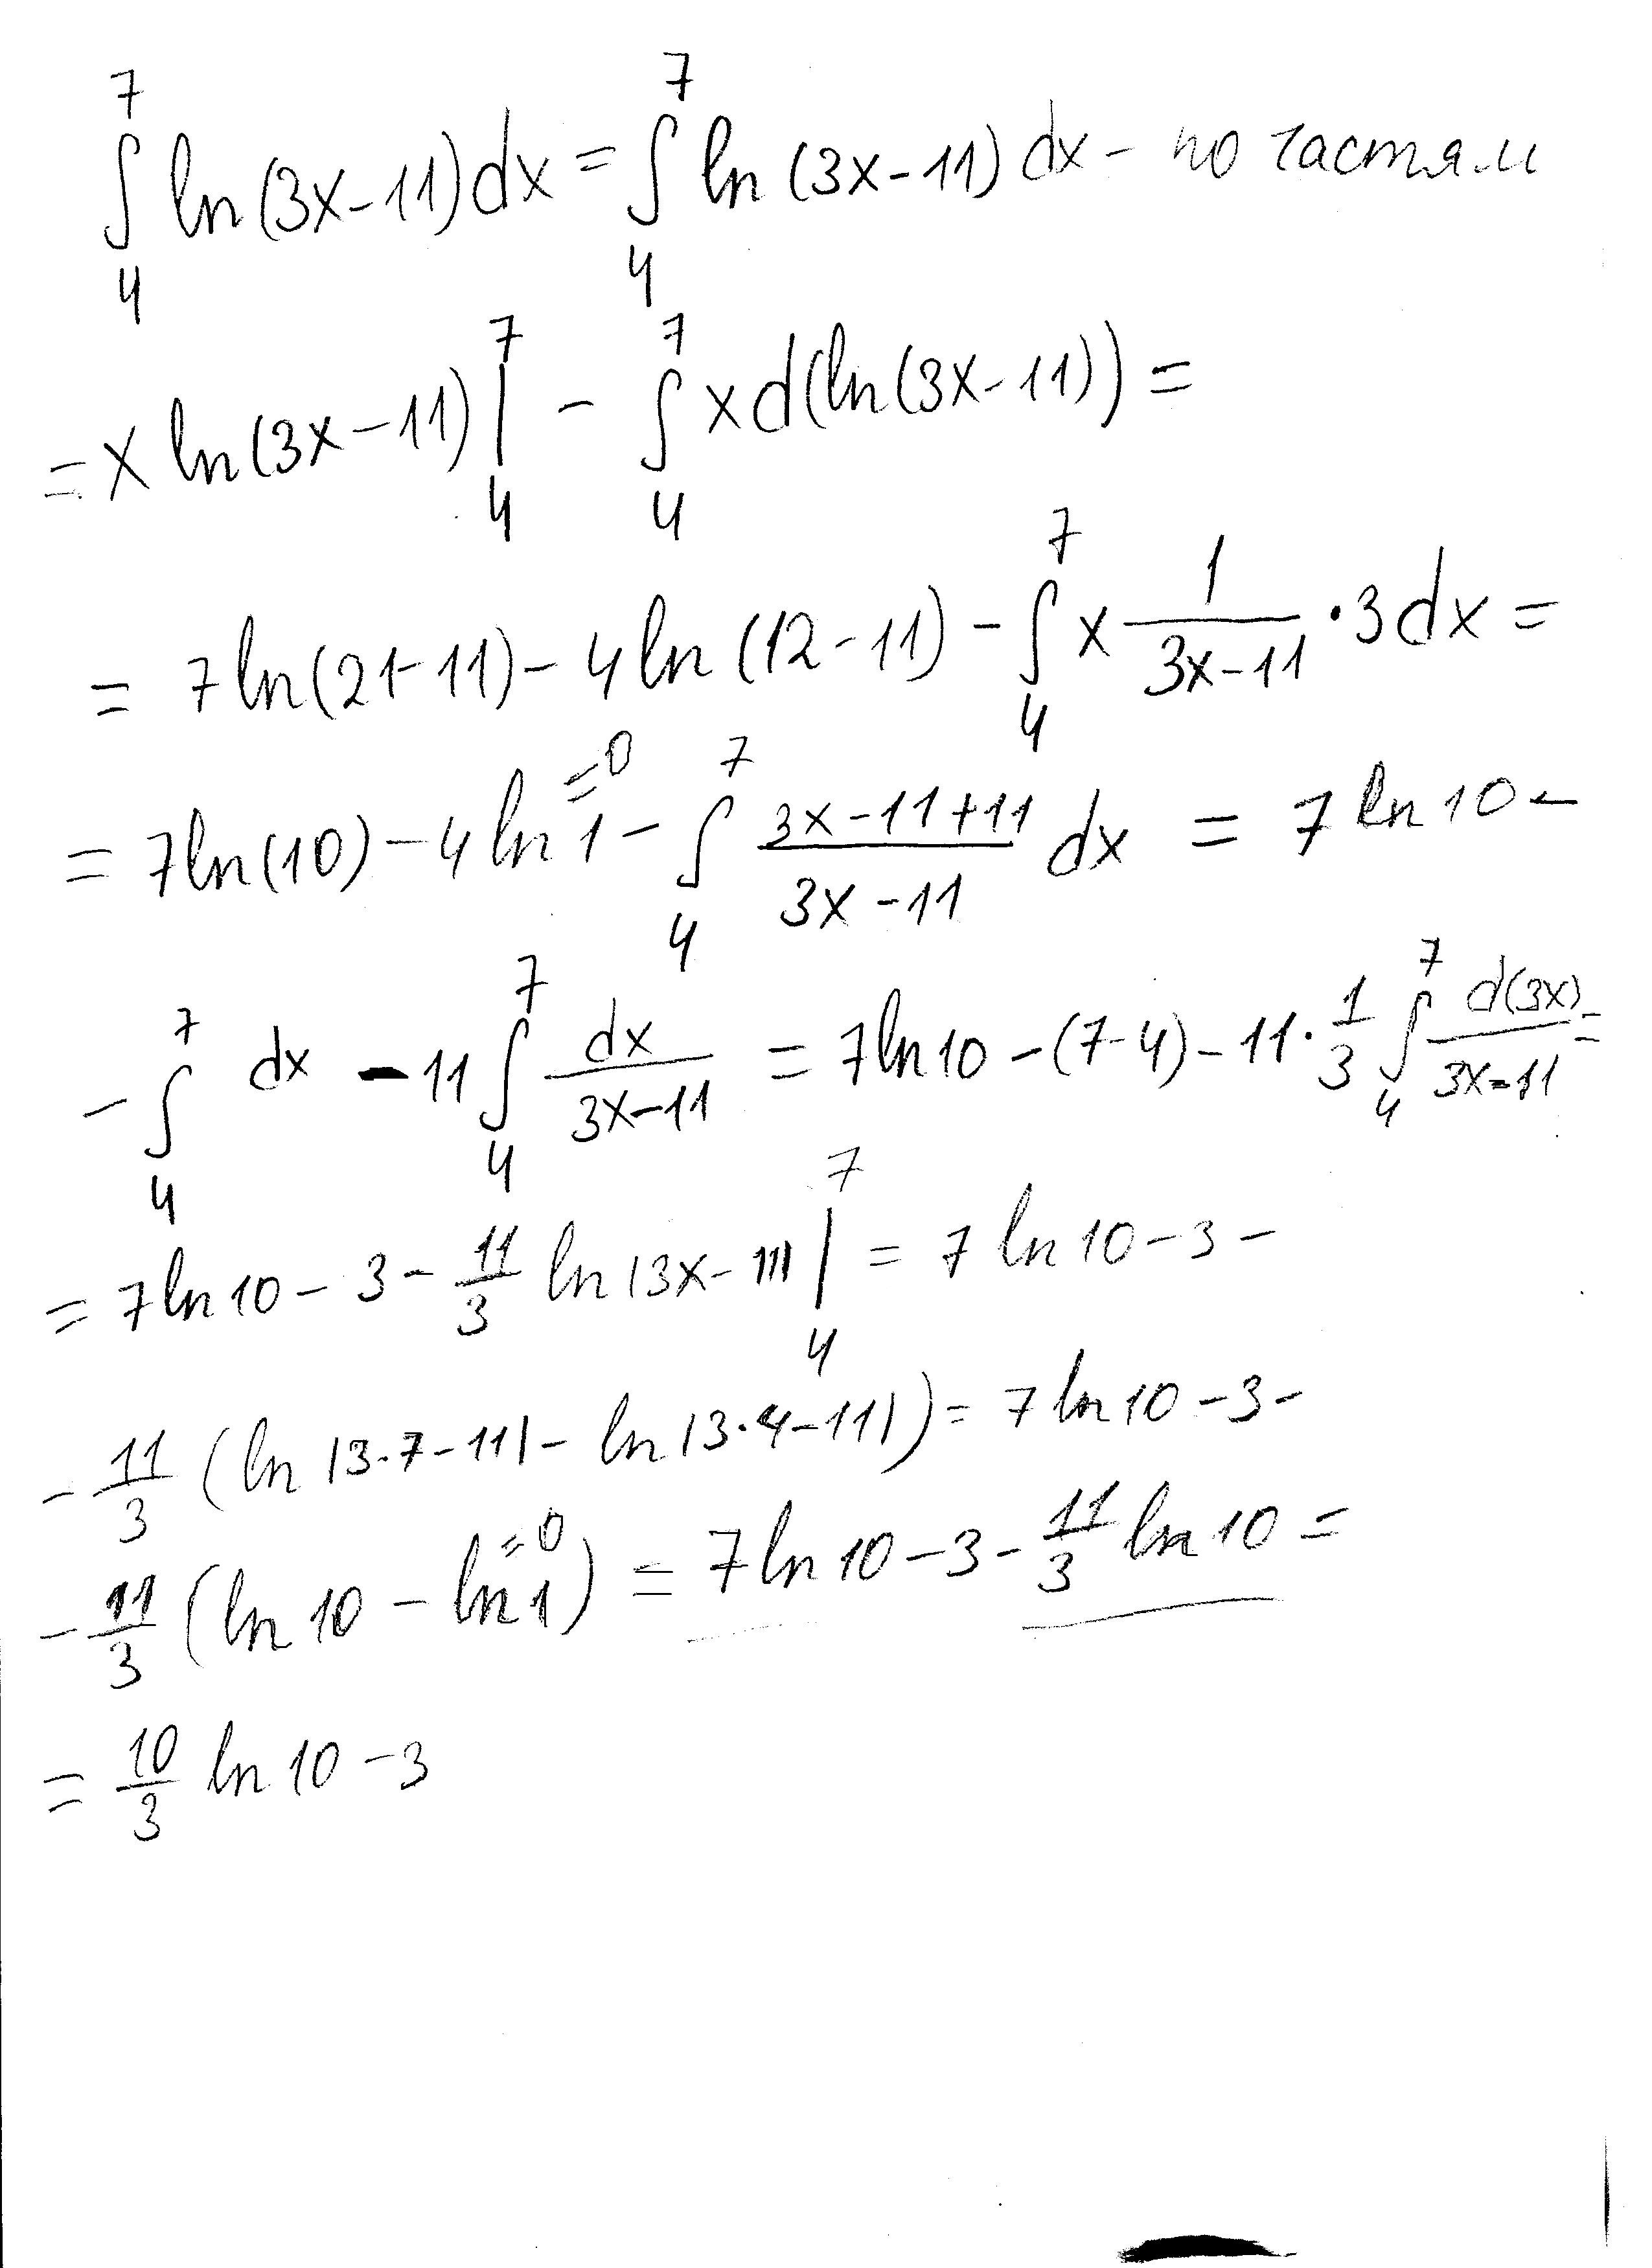 ∫₄⁷ ln(3x-11)dx = ∫₄⁷ ln(3x-11)dx - по частям
= x ln(3x-11)|₄⁷ - ∫₄⁷ x d(ln(3x-11)) =
= 7ln(21-11) - 4ln(12-11) - ∫₄⁷ x 1/(3x-11) · 3dx =
= 7ln(10) - 4ln1 ⁼⁰ - ∫₄⁷ (3x-11+11)/(3x-11) dx = 7ln10 -
- ∫₄⁷ dx - 11 ∫₄⁷ dx/(3x-11) = 7ln10 - (7-4) - 11 · 1/3 ∫₄⁷ d(3x)/(3x-11) =
= 7ln10 - 3 - 11/3 ln|3x-11| |₄⁷ = 7ln10 - 3 -
- 11/3 (ln|3·7-11| - ln|3·4-11|) = 7ln10 - 3 -
- 11/3 (ln10 - ln1 ⁼⁰) = 7ln10 - 3 - 11/3 ln10 =
= 10/3 ln10 - 3